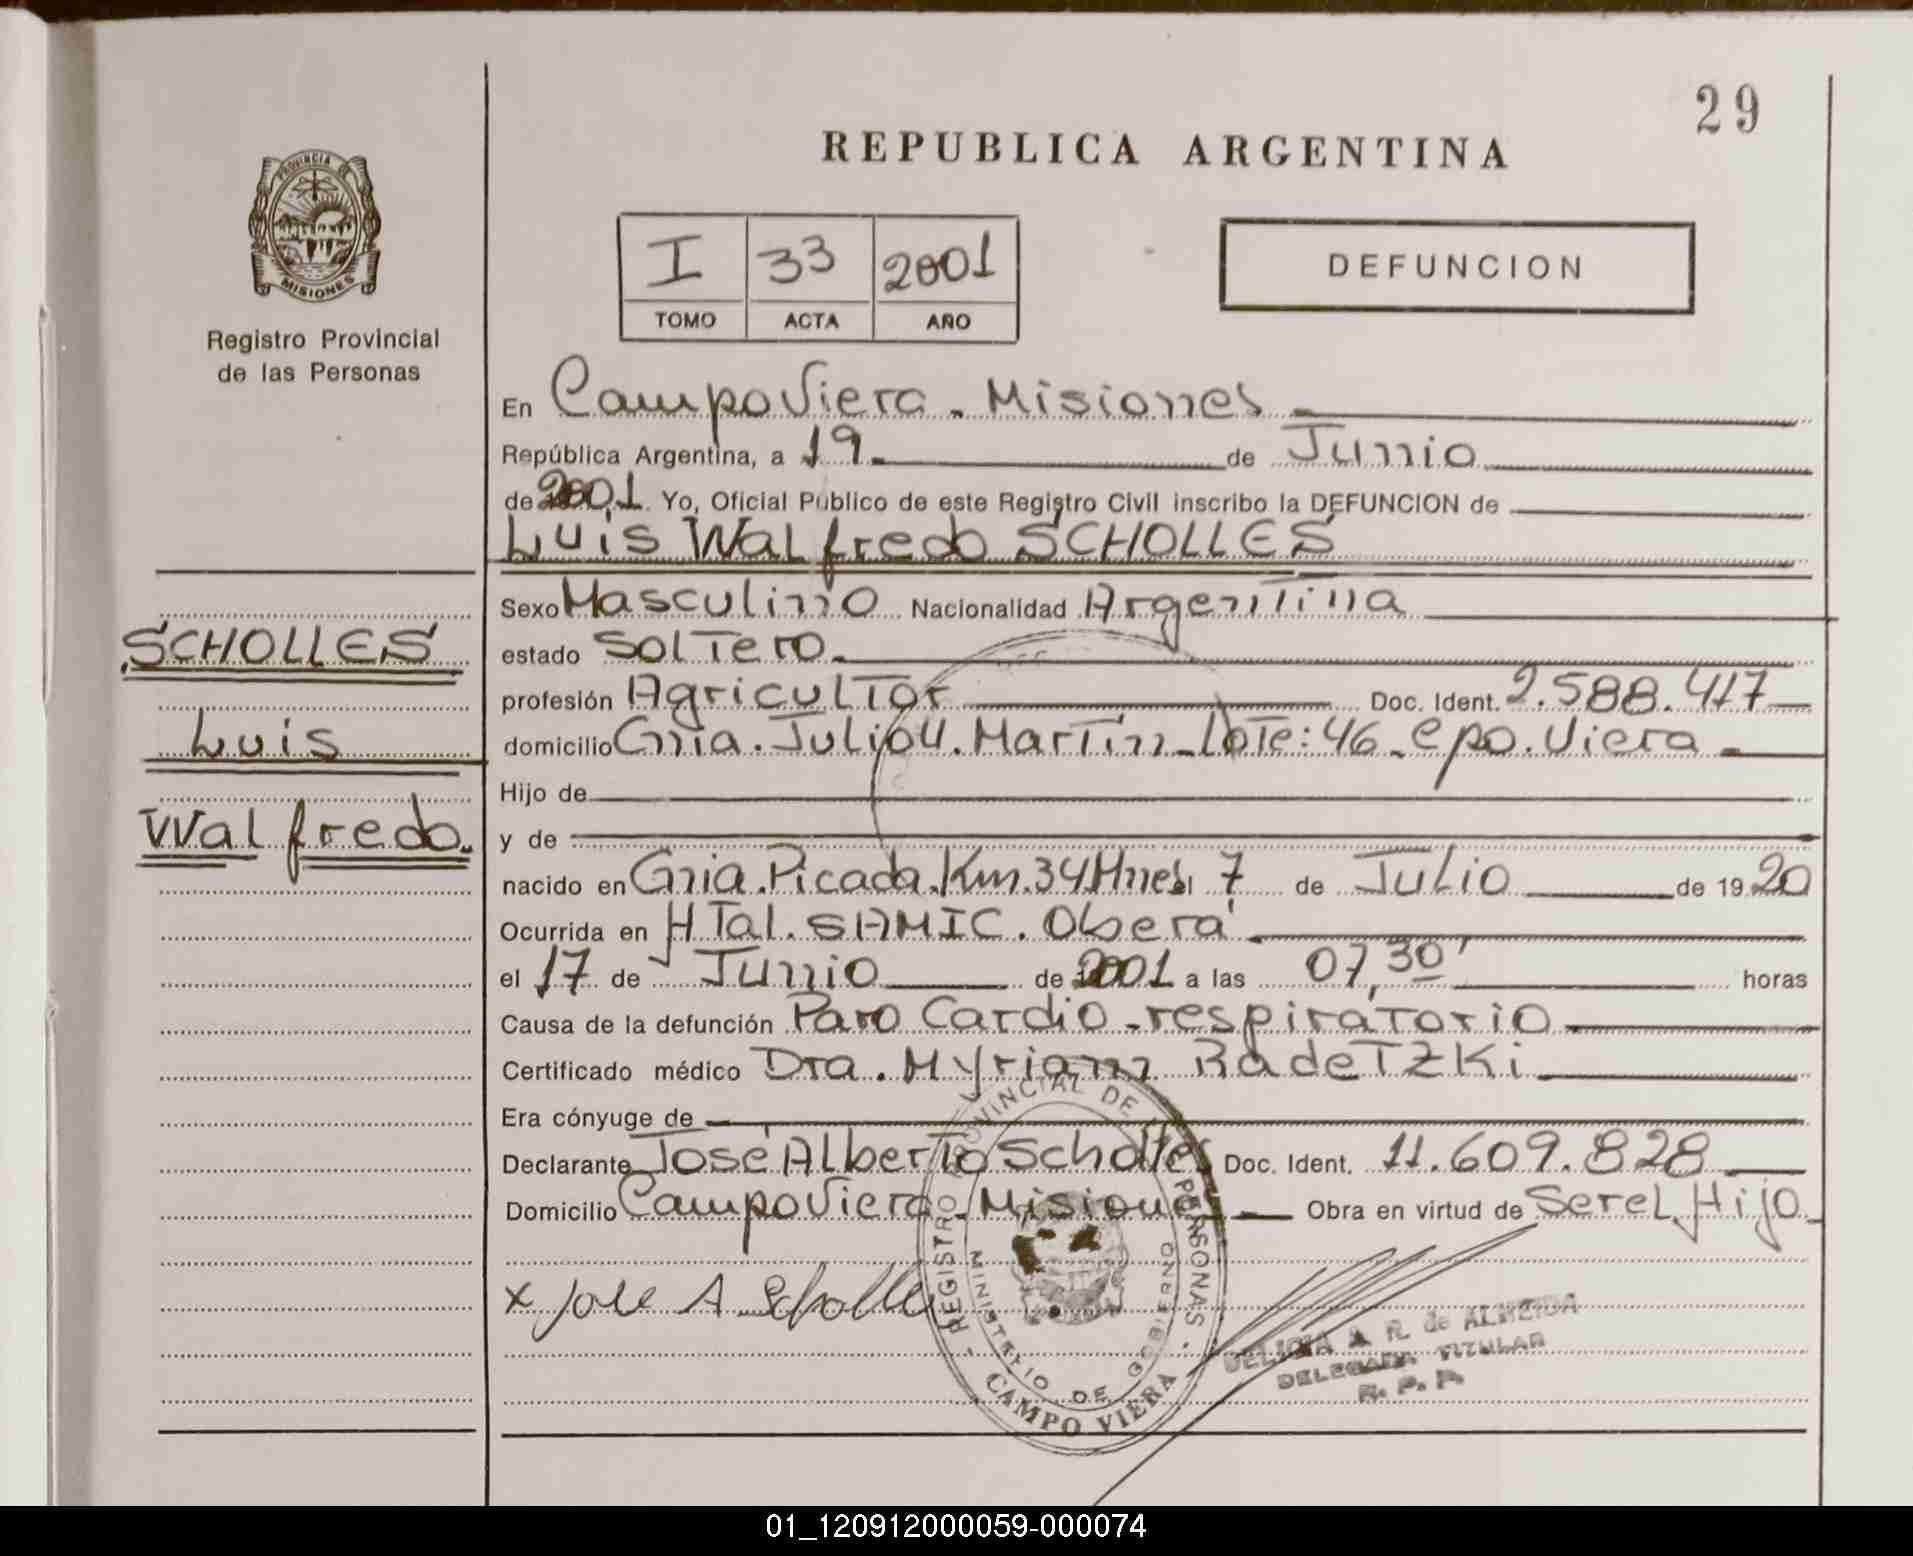 29
REPUBLICA ARGENTINA
PROVINCIA DE
MISIONES
Registro Provincial
de las Personas
I 33 2001
TOMO ACTA AÑO
DEFUNCION
En Campo Viera - Misiones
República Argentina, a 19 de Junio
de 2001. Yo, Oficial Público de este Registro Civil inscribo la DEFUNCION de
Luis Walfredo SCHOLLES
Sexo Masculino Nacionalidad Argentina
SCHOLLES
estado Soltero
profesión Agricultor Doc. Ident. 2.588.417
Luis
domicilio Cnia. Julio U. Martin - Lote: 46 - Cpo. Viera
Hijo de
Walfredo.
y de
nacido en Cnia. Picada. Km. 34 Mnes el 7 de Julio de 1920
Ocurrida en HTal. SAMIC. Oberá
el 17 de Junio de 2001 a las 07,30' horas
Causa de la defunción Paro Cardio-respiratorio
Certificado médico Dra. Myriam RadeTZKi
Era cónyuge de
Declarante José Alberto Scholles Doc. Ident. 11.609.828
Domicilio Campo Viera - Misiones Obra en virtud de Ser el Hijo
x Jose A Scholles
REGISTRO PROVINCIAL DE LAS PERSONAS
MINISTERIO DE GOBIERNO
CAMPO VIERA
A. R. de ALMEIDA
DELEGADA TITULAR
R. P. P.
01_120912000059-000074